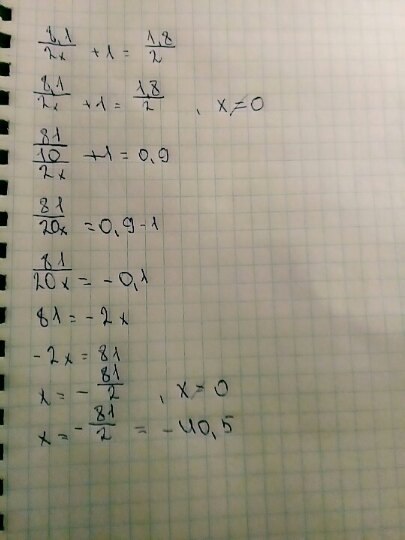 8,1/2x + 1 = 1,8/2
8,1/2x + 1 = 1,8/2 , x ≠ 0
81/10/2x + 1 = 0,9
81/20x = 0,9 - 1
81/20x = -0,1
81 = -2x
-2x = 81
x = -81/2 , x = 0
x = -81/2 = -40,5